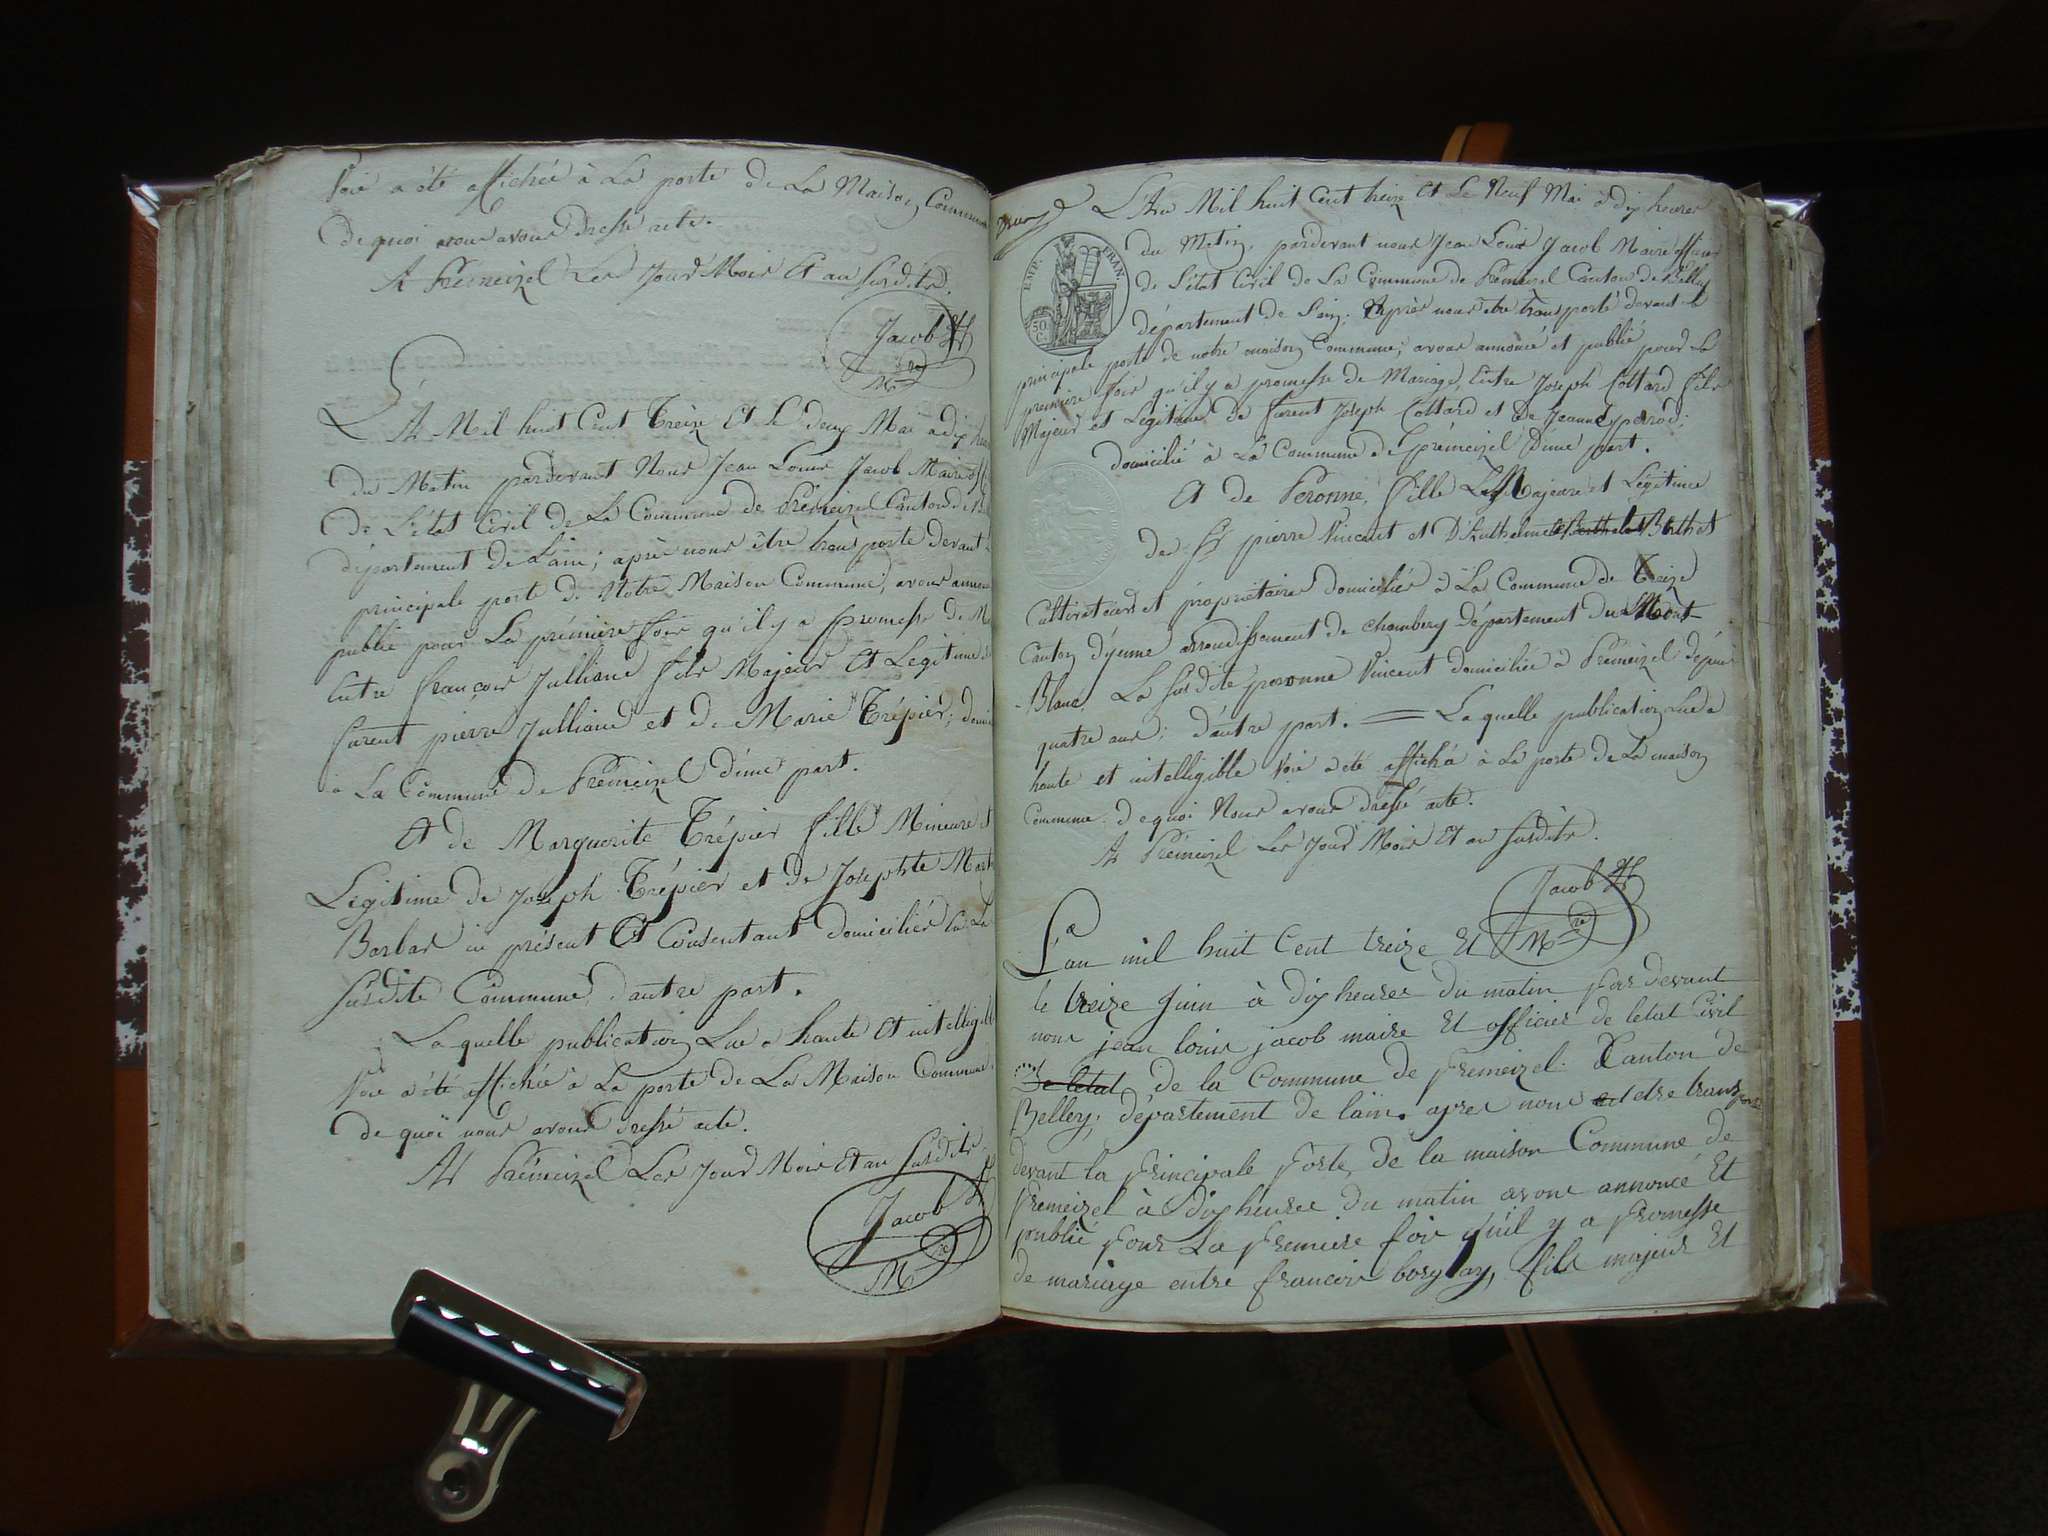 Voix a été affichée à La porte de La Maison Commune
de quoi nous avons dressé acte.
A Prémeizel Les Jour Mois Et an susdits.
Jacob
M re
L'An Mil huit Cent Treize Et Le deux Mai à dix heures
du Matin pardevant Nous Jean Louis Jacob Maire off
De L'état Civil de La Commune de Prémeizel Canton de B
département de L'ain; après nous être transporté devant
principale porte de Notre Maison Commune, avons annon
publié pour La prémière fois qu'il y a promesse de M
Entre françois Julliand fils Majeur Et Legitime
furent pierre Julliand et de Marie Trépier; domi
à La Commune de Prémeizel d'une part.
Et de Marguerite Trépier fille Mineure et
Légitime de Joseph Trépier et de Josephte Mar
Barbar ici présent Et Consentant domiciliés en La
susdite Commune, d'autre part.
La quelle publication Lue a haute Et intelligible
Voix a été affichée à La porte de La Maison Commune
de quoi nous avons dressé acte.
A Prémeizel Les Jour Mois Et an susdits
Jacob
M re
L'An Mil huit Cent treize Et Le Neuf Mai à dix heures
du Matin, pardevant nous Jean Louis Jacob Maire officier
de L'état Civil de La Commune de Prémeizel Canton de Belley
département de L'ain; Après nous être transporté devant la
principale porte de notre maison Commune; avons annoncé et publié pour La
première fois qu'il y a promesse de Mariage, Entre Joseph Cottard fils
Majeur et Légitime de furent Joseph Cottard et de Jeanne perrod;
domicilié à La Commune de prémeizel d'une part.
Et de Peronne, fille Majeure et Légitime
de Sr pierre Vincent et D'Anthelmette Berthelet Berthet
Cultivateurs et propriétaires domiciliés à La Commune de Traize
Canton d'yenne arrondissement de chambery département du Mont-
-Blanc. La susdite peronne Vincent domiciliée à Prémeizel depuis
quatre ans; d'autre part. = La quelle publication Lue a
haute et intelligible Voix a été affiché à La porte de La maison
Commune. de quoi Nous avons dressé acte.
A Prémeizel Les Jour Mois Et an susdits.
Jacob
M re
L'an mil huit Cent treize Et
le treize Juin à dix heures du matin pardevant
nous jean louis jacob maire Et officier de letat Civil
de letat de la Commune de premeizel Canton de
Belley; département de lain. apres nous etre transporté
devant la principale porte de la maison Commune de
premeizel à dix heures du matin avons annoncé Et
publié pour La premiere fois qu'il y a promesse
de mariage entre francois borgey, fils majeur Et
EMP. FRAN.
50 C.